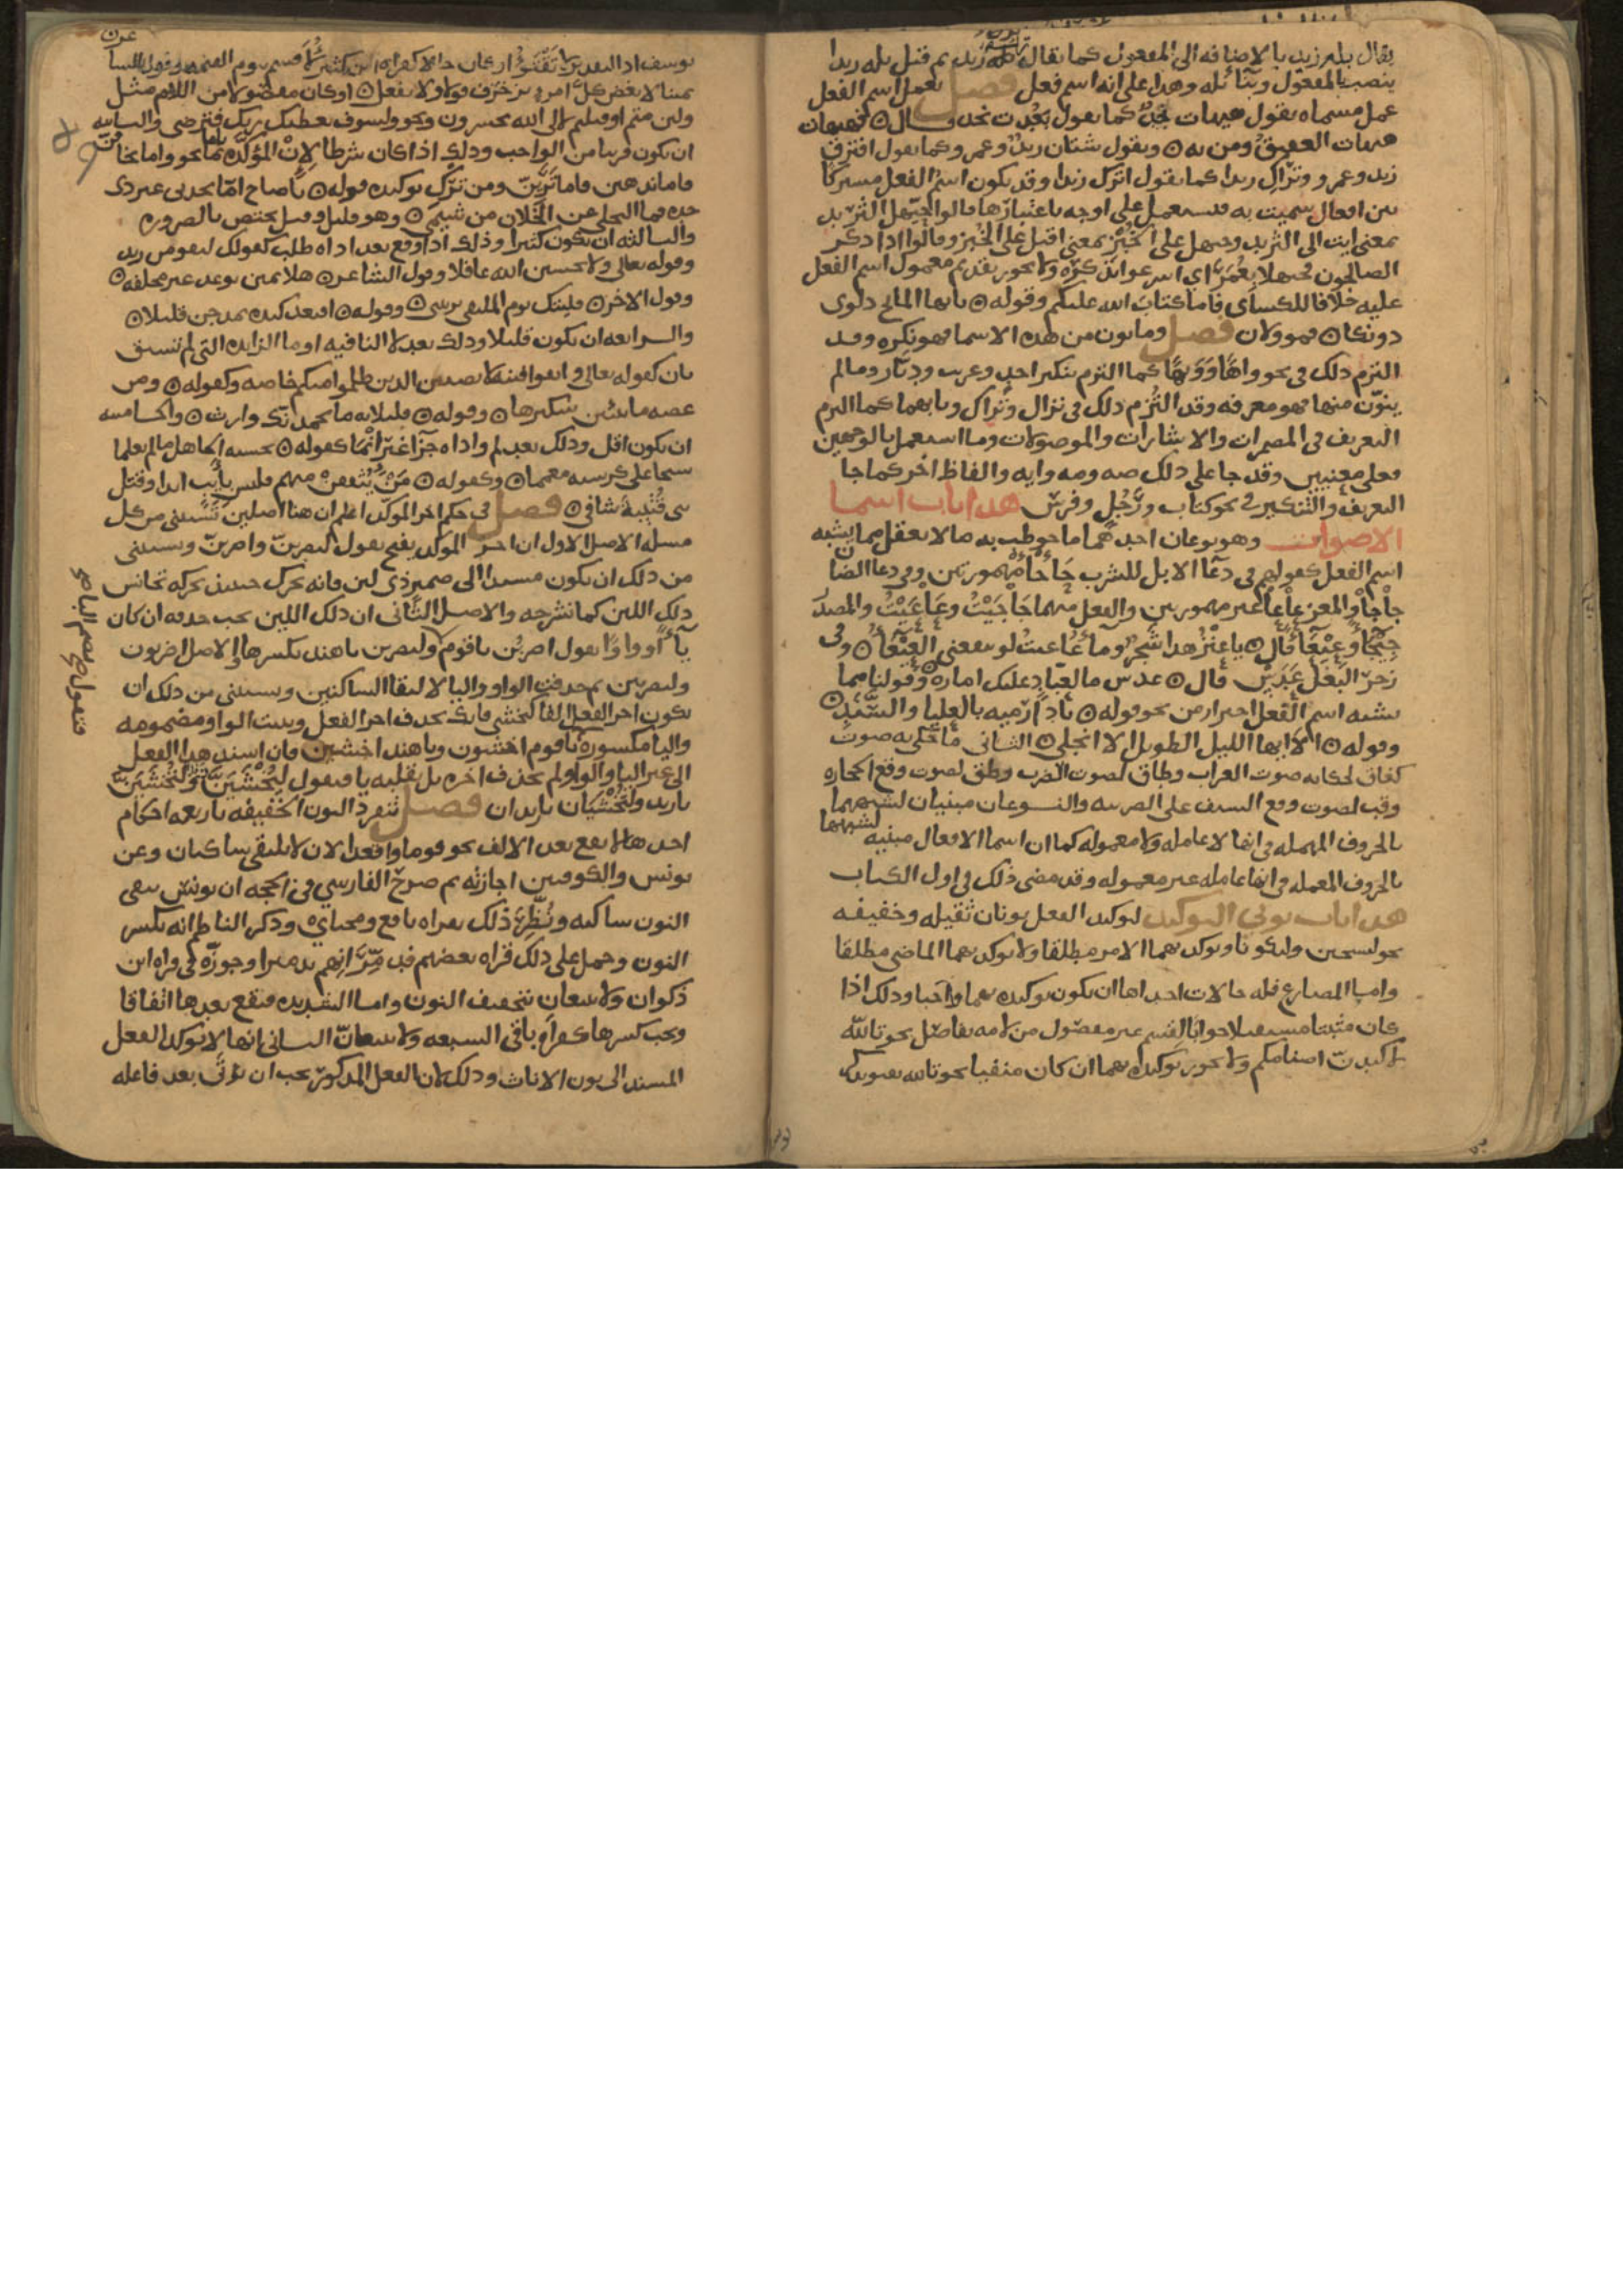 يقال بله زيد بالاضافه الى المفعول كما يقال ترك زيد ثم قيل بله زيدا
ينصب المفعول وبنا بله وهذا على انه اسم فعل فصل يعمل اسم الفعل
عمل مسماه يقول هيهات نجد كما يقول بعدت نجد قال فهيهات
هيهات العقيق ومن به وتقول شتان زيد وعمرو كما يقول افترق
زيد وعمرو وتراك زيدا كما يقول اترك زيدا وقد يكون اسم الفعل مشتركا
بين افعال سميت به فيستعمل على اوجه باعتبارها قالوا حيهل الثريد
بمعنى ايت الى الثريد وحيهل على الخبز بمعنى اقبل على الخبز وقالوا اذا ذكر
الصالحون فحيهلا بعمر اي اسرعوا بذكره ولا يجوز تقديم معمول اسم الفعل
عليه خلافا للكساى فاما كتاب الله عليكم وقوله يا ايها المايح دلوى
دونكا فمؤولان فصل وما نون من هذه الاسما فهو نكره وقد
التزم ذلك في نحو واها وويها كما التزم تنكير احد وعريب وديار وما لم
ينون منها فهو معرفه وقد التزم ذلك في نزال وتراك وبابهما كما التزم
التعريف في المضمرات والاشارات والموصولات وما استعمل بالوجهين
فعلى معنيين وقد جا على ذلك صه ومه وايه والفاظ اخر كما جا
التعريف والتنكير في نحو كتاب ورجل وفرس هذا باب اسما
الاصوات وهو نوعان احدهما ما خوطب به ما لا يعقل مما يشبه
اسم الفعل كقولهم في دعا الابل للشرب جا جا مهموزتين وفي دعا الضان
حاحا والمعز عاعا غير مهموزين والفعل منهما حاحيت وعاعيت والمصدر
حيحا وعيعا قال يا عنز هذا شجر وما عاعيت لو ينفعني العيعا وفى
زجر البغل عدس قال عدس ما لعباد عليك اماره وقولنا مما
يشبه اسم الفعل احتراز من نحو قوله يا دار ميه بالعليا والسند
وقوله الا ايها الليل الطويل الا انجلي الثانى ما حكى به صوت
كغاق لحكايه صوت الغراب وطاق لصوت الضرب وطق لصوت وقع الحجاره
وقب لصوت وقع السيف على الضريبه والنوعان مبنيان لشبههما
لشبهها
بالحروف المهمله في انها لا عامله ولا معموله كما ان اسما الافعال مبنيه
بالحروف المعمله في انها عامله غير معموله وقد مضى ذلك في اول الكتاب
هذا باب نوني التوكيد لتوكيد الفعل نونان ثقيله وخفيفه
نحو ليسجنن وليكونا ويوكد بهما الامر مطلقا ولا يوكد بهما الماضي مطلقا
واما المضارع فله حالات احداها ان يكون توكيده بهما واجبا وذلك اذا
كان مثبتا مستقبلا جوابا لقسم غير مفصول من لامه بفاصل نحو تالله
لاكيدن اصنامكم ولا يجوز توكيده بهما ان كان منفيا نحو تالله تفتؤ تذكر
يوسف اذ التقدير لا تفتؤ او كان حالا كقراه ابن كثير لاقسم بيوم القيمه وقول الشا
عر
يمينا لابغض كل امرئ يزخرف قولا ولا يفعل او كان مفصولا من اللام مثل
ولين متم او قتلتم لالى الله تحشرون ونحو ولسوف يعطيك ربك فترضى والثانيه
ان يكون قريبا من الواجب وذلك اذا كان شرطا لان المؤكده بما نحو واما تخافن
فاما نذهبن فاما ترين ومن ترك توكيده قوله يا صاح اما تجدني غير ذى
جده فما التخلي عن الخلان من شيمى وهو قليل وقيل يختص بالضروره
والثالثه ان يكون كثيرا وذلك اذا وقع بعد اداه طلب كقولك ليقومن زيد
وقوله تعالى ولا تحسبن الله غافلا وقول الشاعر هلا تمنن بوعد غير مخلفه
وقول الاخر فليتك يوم الملتقى ترينني وقوله افبعد كنده تمدحن قبيلا
والرابعه ان يكون قليلا وذلك بعد لا النافيه او ما الزايده التي لم تسبق
بان كقوله تعالى واتقوا فتنه لا تصيبن الذين ظلموا منكم خاصه وكقوله ومن
عضه ما ينبتن شكيرها وقوله قليلا به ما يحمدنك وارث والخامسه
ان يكون اقل وذلك بعد لم واداه جزا غير اما كقوله يحسبه الجاهل ما لم يعلما
شيخا على كرسيه معمما وكقوله من يثقفن منهم فليس بآيب ابدا وقتل
بني قتيبه شافي فصل في حكم اخر الموكد اعلم ان هنا اصلين يستثنى من كل
مسله الاصل الاول ان اخر الموكد يفتح يقول لتضربن واضربن ويستثنى
من ذلك ان يكون مسندا الى ضمير ذى لين فانه يحرك حينئذ بحركه تجانس
ذلك اللين كما نشرحه والاصل الثانى ان ذلك اللين يجب حذفه ان كان
يآ او واوا يقول اضربن يا قوم ولتضربن يا هند بكسرها والاصل اضربون
ولتضربين ثم حذفت الواو واليا لالتقا الساكنين ويستثنى من ذلك ان
يكون اخر الفعل الفا كيخشى فانك تحذف اخر الفعل وتثبت الواو مضمومه
واليا مكسوره يا قوم اخشون ويا هند اخشين فان اسند هذا الفعل
الى غير اليا والواو لم تحذف اخره بل تقلبه يا فيقول ليخشين زيد ولتخشين
يا زيد ولتخشيان يا زيدان فصل تنفرد النون الخفيفه باربعه احكام
احدها لا تقع بعد الالف نحو قوما واقعدا لان لا يلتقى ساكنان وعن
يونس والكوفيين اجازته ثم صرح الفارسي في الحجه ان يونس يبقى
النون ساكنه ونظر ذلك بقراه نافع ومحياي وذكر الناظم انه يكسر
النون وحمل على ذلك قراه بعضهم فدمرانهم تدميرا وجوزه في قراه ابن
ذكوان ولا تتبعان بتخفيف النون واما الشديده فتقع بعدها اتفاقا
ويجب كسرها كقراه باقي السبعه ولا تتبعان الثانى انها لا توكد الفعل
المسند الى نون الاناث وذلك لان الفعل المذكور يجب ان يؤتى بعد فاعله